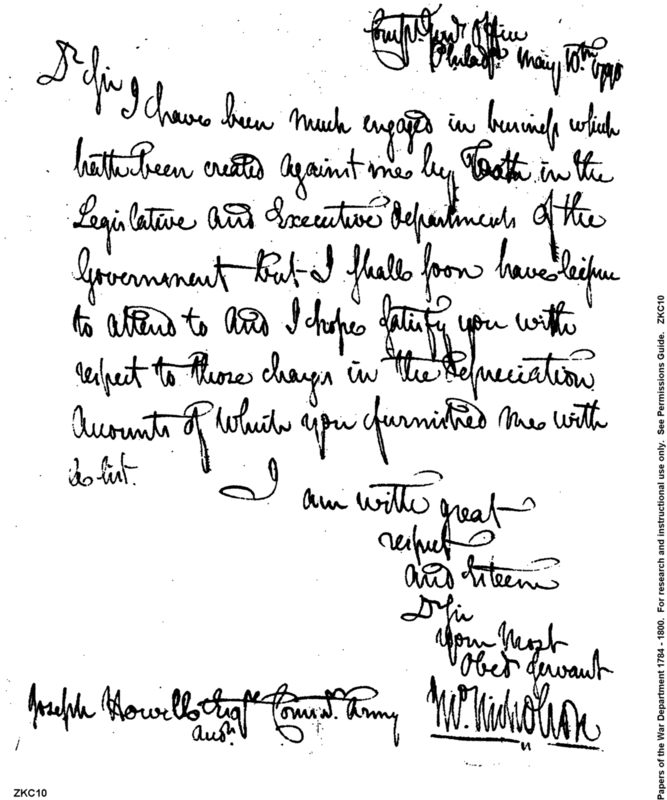 Compt. Genl. Office
Philada. May 10th. 1790
Dr Sir
I have been much engaged in business which
hath been created against me by Both in the
Legislative and Executive departments of the
Government but I shall soon have leisure
to attend to and I hope satisfy you with
respect to those charges in the depreciation
Accounts of which you furnished me with
a list.
I am with great
respect
and Esteem
Dr Sir
your most
Obed Servant
Jno. Nicholson
Joseph Howell Esqr. Comr. Army
Papers of the War Department 1784 - 1800. For research and instructional use only. See Permissions Guide. ZKC10
ZKC10